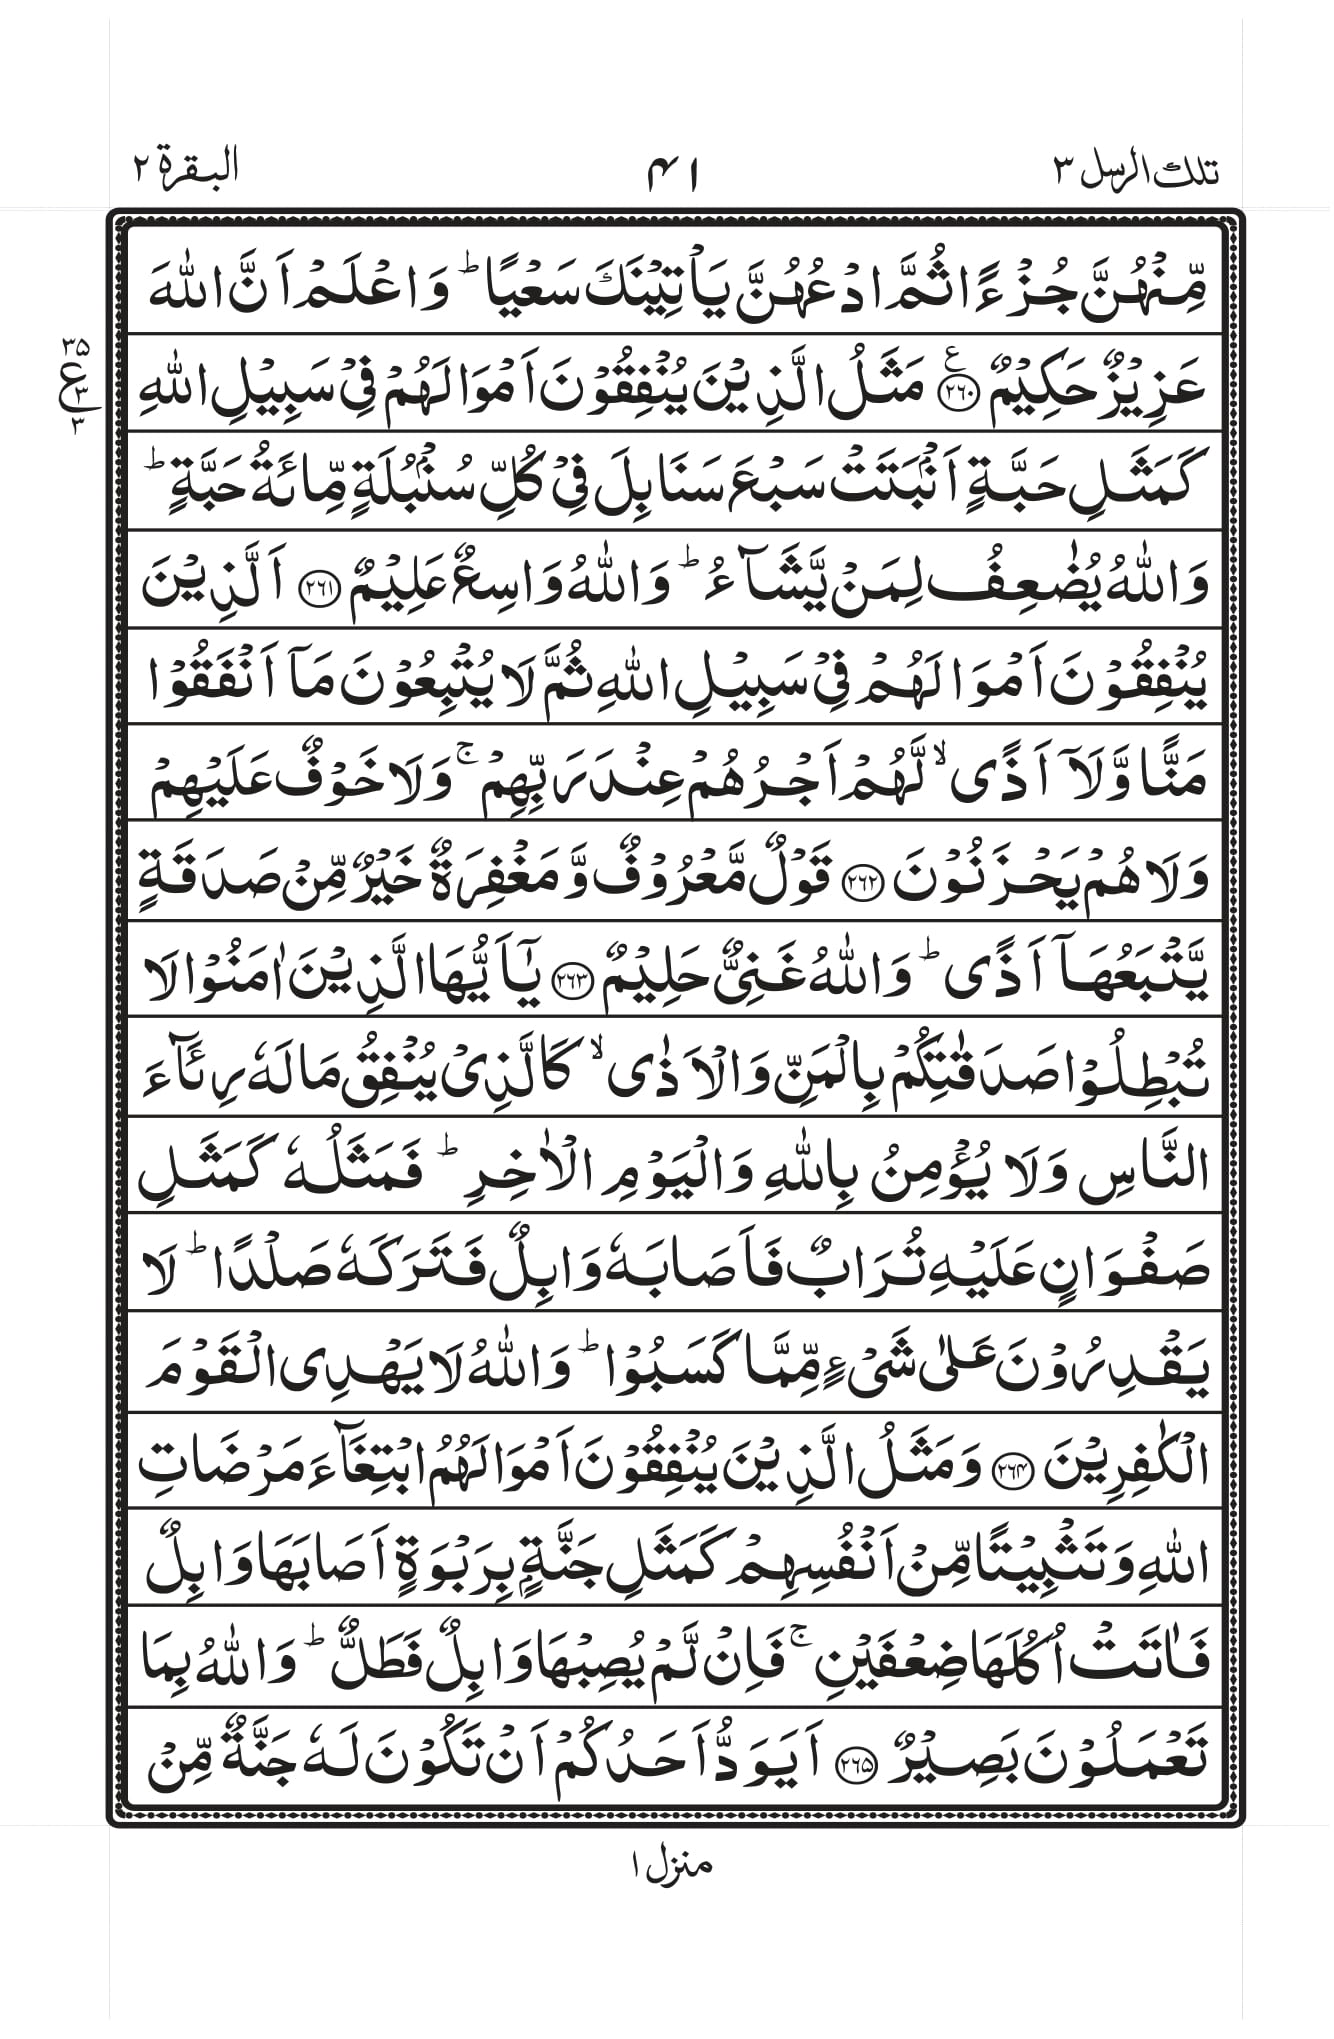 تلك الرسل ٣
٤١
البقرة ٢
مِّنْهُنَّ جُزْءًا ثُمَّ ادْعُهُنَّ يَاْتِيْنَكَ سَعْيًا ؕ وَاعْلَمْ اَنَّ اللّٰهَ
عَزِيْزٌ حَكِيْمٌ ﴿۲۶۰﴾ ع مَثَلُ الَّذِيْنَ يُنْفِقُوْنَ اَمْوَالَهُمْ فِيْ سَبِيْلِ اللّٰهِ
٣٥
ع
٣
٣
كَمَثَلِ حَبَّةٍ اَنْۢبَتَتْ سَبْعَ سَنَابِلَ فِيْ كُلِّ سُنْۢبُلَةٍ مِّائَةُ حَبَّةٍ ؕ
وَاللّٰهُ يُضٰعِفُ لِمَنْ يَّشَآءُ ؕ وَاللّٰهُ وَاسِعٌ عَلِيْمٌ ﴿۲۶۱﴾ اَلَّذِيْنَ
يُنْفِقُوْنَ اَمْوَالَهُمْ فِيْ سَبِيْلِ اللّٰهِ ثُمَّ لَا يُتْبِعُوْنَ مَآ اَنْفَقُوْا
مَنًّا وَّلَآ اَذًى ۙ لَّهُمْ اَجْرُهُمْ عِنْدَ رَبِّهِمْ ۚ وَلَا خَوْفٌ عَلَيْهِمْ
وَلَا هُمْ يَحْزَنُوْنَ ﴿۲۶۲﴾ قَوْلٌ مَّعْرُوْفٌ وَّمَغْفِرَةٌ خَيْرٌ مِّنْ صَدَقَةٍ
يَّتْبَعُهَآ اَذًى ؕ وَاللّٰهُ غَنِيٌّ حَلِيْمٌ ﴿۲۶۳﴾ يٰٓاَيُّهَا الَّذِيْنَ اٰمَنُوْا لَا
تُبْطِلُوْا صَدَقٰتِكُمْ بِالْمَنِّ وَالْاَذٰى ۙ كَالَّذِيْ يُنْفِقُ مَالَهٗ رِئَآءَ
النَّاسِ وَلَا يُؤْمِنُ بِاللّٰهِ وَالْيَوْمِ الْاٰخِرِ ؕ فَمَثَلُهٗ كَمَثَلِ
صَفْوَانٍ عَلَيْهِ تُرَابٌ فَاَصَابَهٗ وَابِلٌ فَتَرَكَهٗ صَلْدًا ؕ لَا
يَقْدِرُوْنَ عَلٰى شَيْءٍ مِّمَّا كَسَبُوْا ؕ وَاللّٰهُ لَا يَهْدِى الْقَوْمَ
الْكٰفِرِيْنَ ﴿۲۶۴﴾ وَمَثَلُ الَّذِيْنَ يُنْفِقُوْنَ اَمْوَالَهُمُ ابْتِغَآءَ مَرْضَاتِ
اللّٰهِ وَتَثْبِيْتًا مِّنْ اَنْفُسِهِمْ كَمَثَلِ جَنَّةٍۭ بِرَبْوَةٍ اَصَابَهَا وَابِلٌ
فَاٰتَتْ اُكُلَهَا ضِعْفَيْنِ ۚ فَاِنْ لَّمْ يُصِبْهَا وَابِلٌ فَطَلٌّ ؕ وَاللّٰهُ بِمَا
تَعْمَلُوْنَ بَصِيْرٌ ﴿۲۶۵﴾ اَيَوَدُّ اَحَدُكُمْ اَنْ تَكُوْنَ لَهٗ جَنَّةٌ مِّنْ
منزل ١